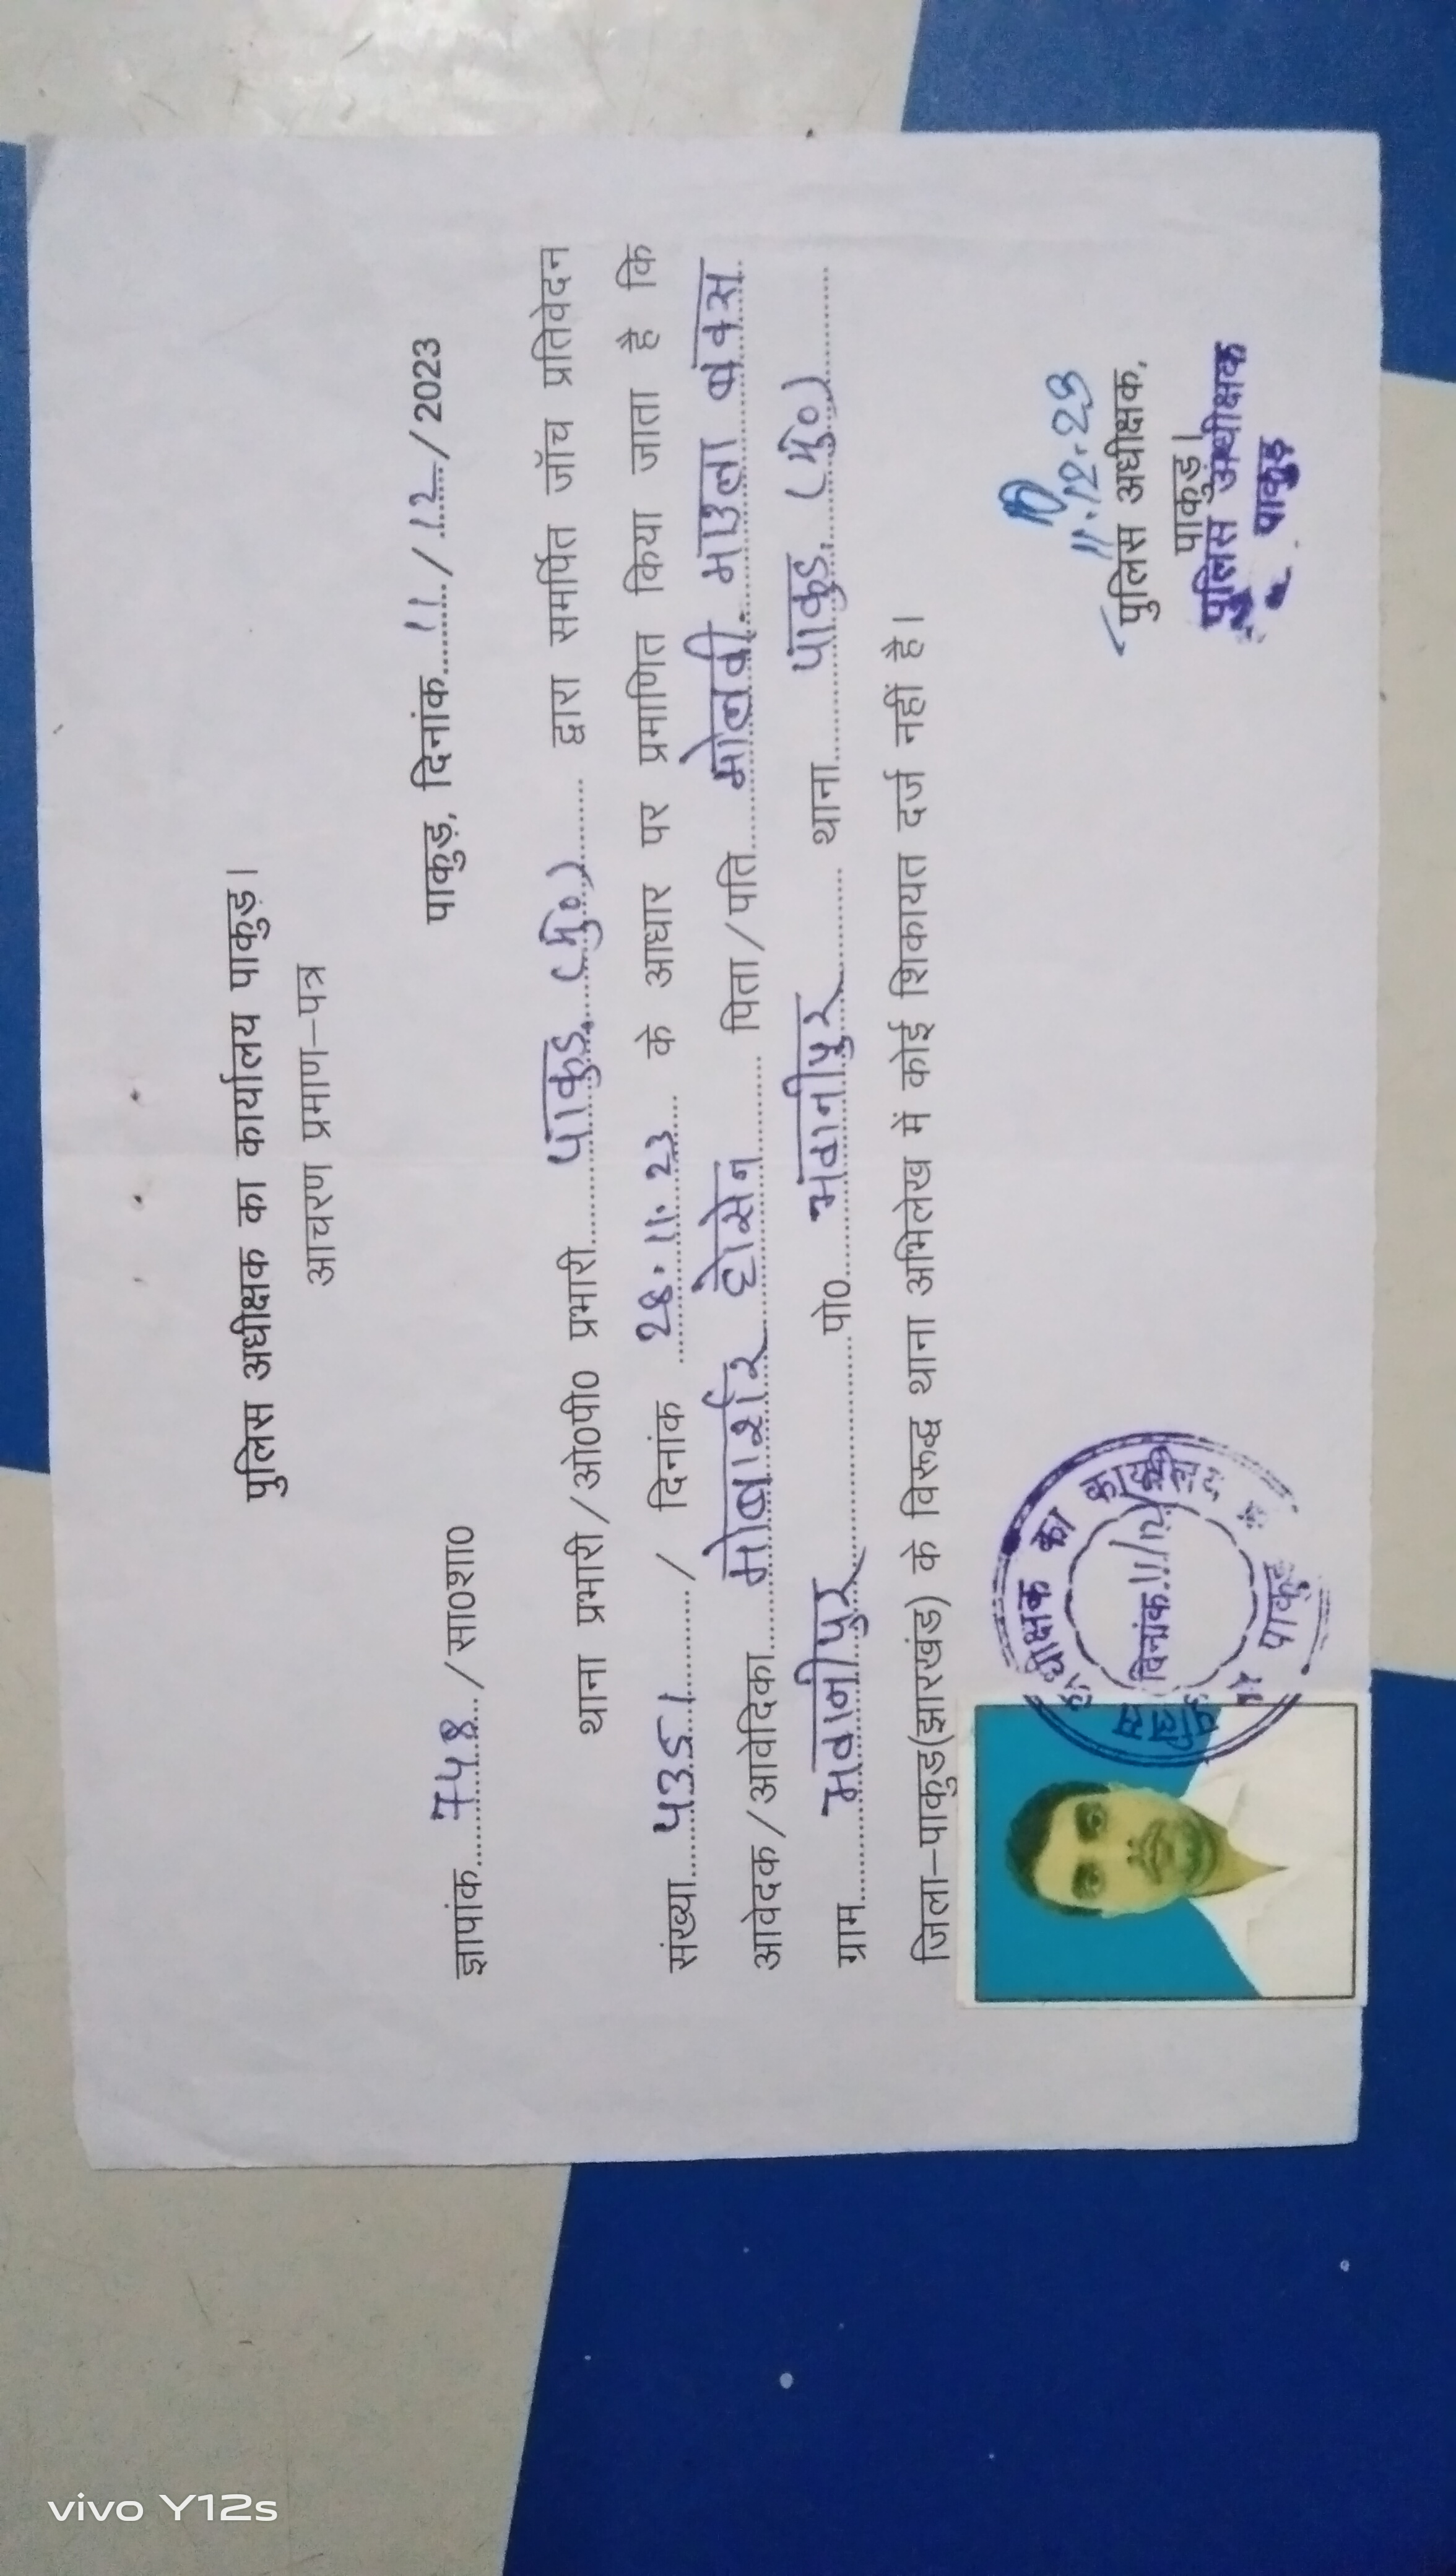 पुलिस अधीक्षक का कार्यालय पाकुड़।
आचरण प्रमाण–पत्र
ज्ञापांक......758....../सा0शा0
पाकुड़, दिनांक....11..../.12../2023
थाना प्रभारी/ओ0पी0 प्रभारी.........पाकुड़ (मु०)......... द्वारा समर्पित जॉच प्रतिवेदन
संख्या.........../ दिनांक ....28.11.23.... के आधार पर प्रमाणित किया जाता है कि
आवेदक/आवेदिका.... होसेन ........ पिता/पति ....मोलवी.
ग्राम.....भवानीपुर.......... पो0....भवानीपुर........ थाना......पाकुड़ (मु०).......
जिला–पाकुड़(झारखंड) के विरूद्ध थाना अभिलेख में कोई शिकायत दर्ज नहीं है।
11.12.23
पुलिस अधीक्षक,
पाकुड़।
पुलिस अधीक्षक
पाकुड़
पुलिस अधीक्षक का कार्यालय
दिनांक 11/12/
पाकुड़
vivo Y12s